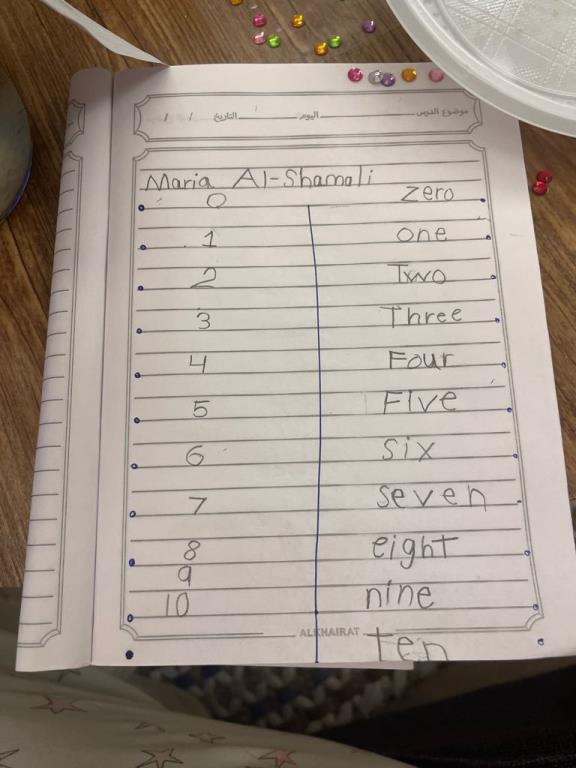 موضوع الدرس اليوم التاريخ / /
Maria Al-Shamali
0 zero
1 one
2 Two
3 Three
4 Four
5 Five
6 six
7 seven
8 eight
9
10 nine
ALKHAIRAT
ten